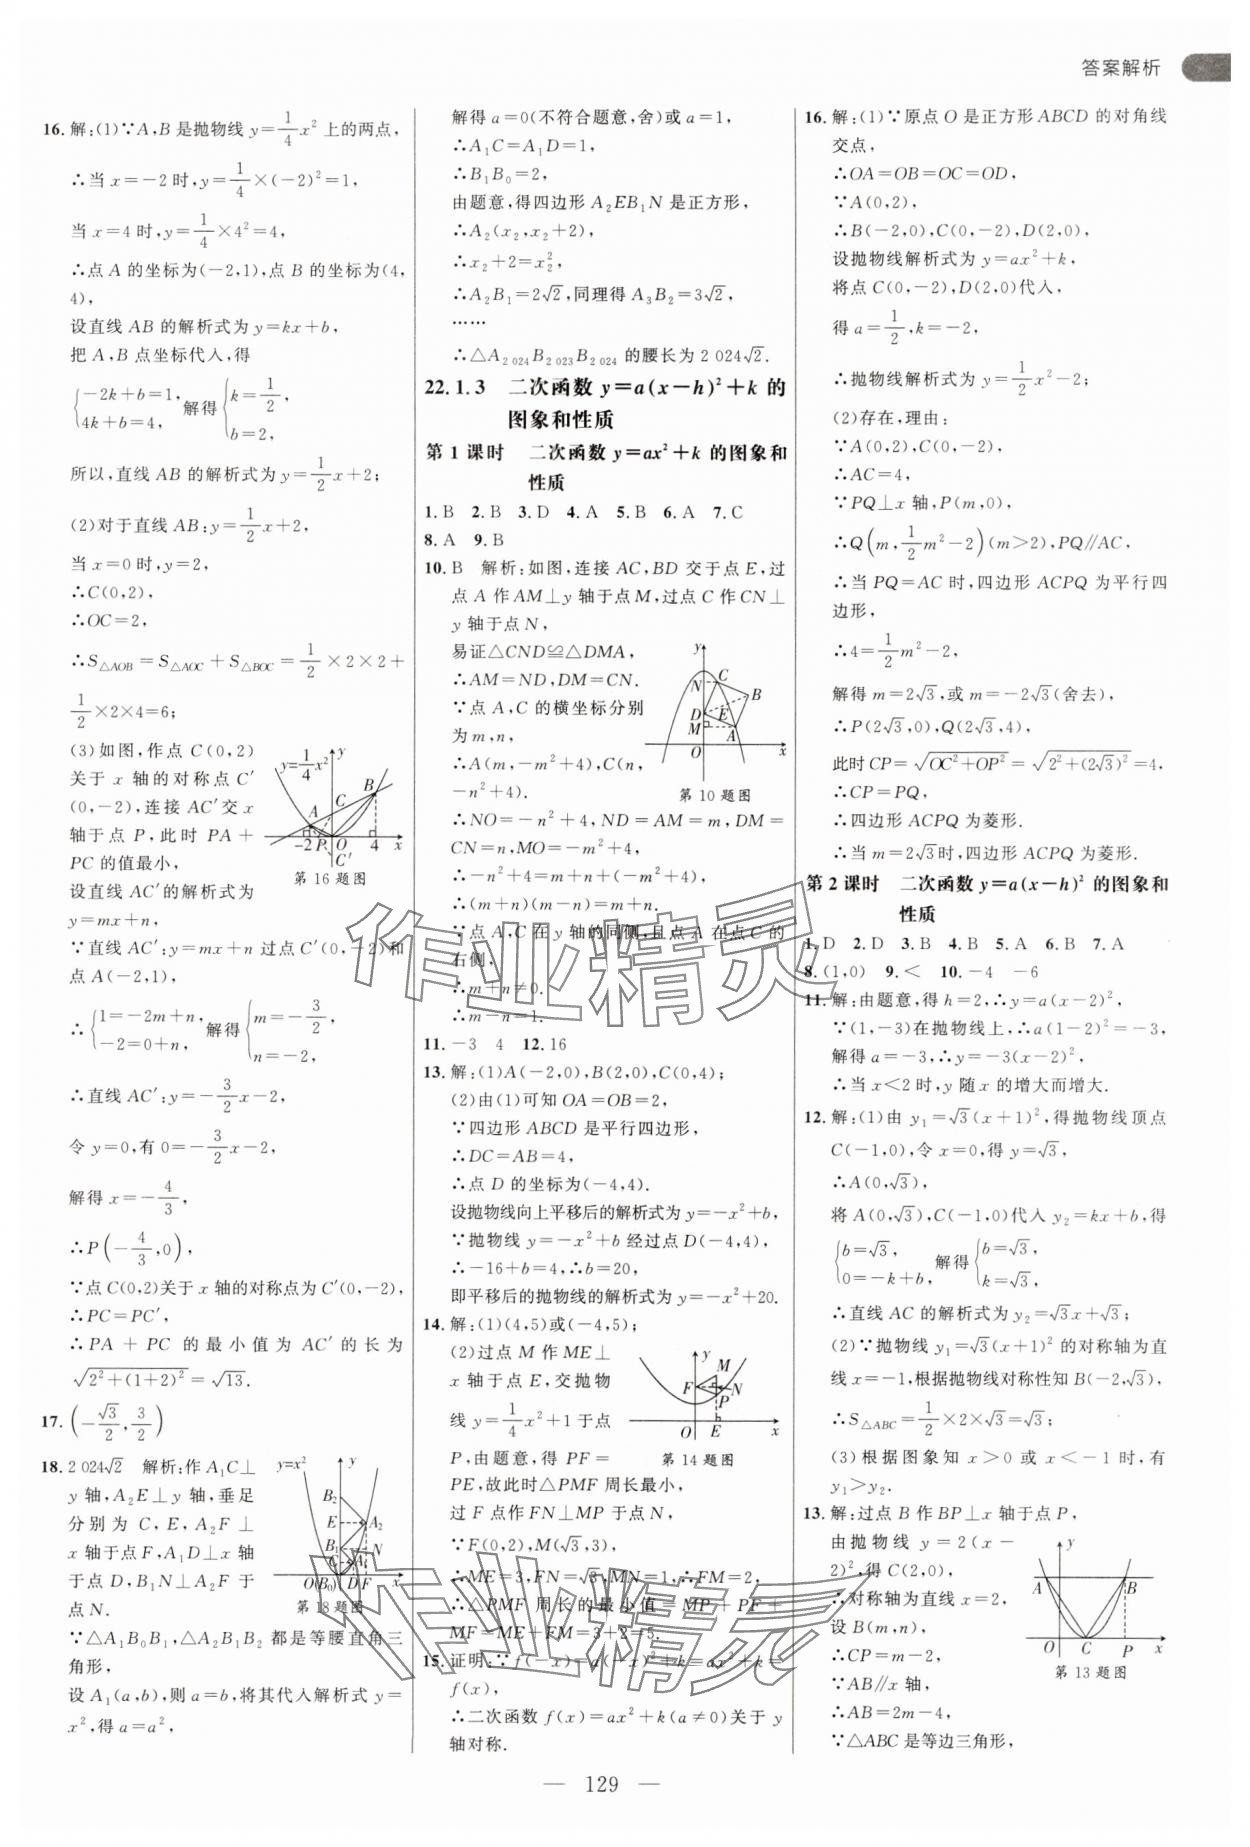 答案解析
16. 解:(1)∵A,B 是抛物线 y=1/4x² 上的两点,
∴当 x=-2 时,y=1/4×(-2)²=1,
当 x=4 时,y=1/4×4²=4,
∴点 A 的坐标为(-2,1),点 B 的坐标为(4,
4),
设直线 AB 的解析式为 y=kx+b,
把 A,B 点坐标代入,得
{-2k+b=1, 4k+b=4, 解得{k=1/2, b=2,
所以,直线 AB 的解析式为 y=1/2x+2;
(2)对于直线 AB:y=1/2x+2,
当 x=0 时,y=2,
∴C(0,2),
∴OC=2,
∴S△AOB=S△AOC+S△BOC=1/2×2×2+
1/2×2×4=6;
(3)如图,作点 C(0,2)
关于 x 轴的对称点 C′
(0,-2),连接 AC′交 x
轴于点 P,此时 PA+
PC 的值最小,
y=1/4x² y C B A -2 P O 4 x C′
第 16 题图
设直线 AC′的解析式为
y=mx+n,
∵直线 AC′:y=mx+n 过点 C′(0,-2)和
点 A(-2,1),
∴{1=-2m+n, -2=0+n, 解得{m=-3/2, n=-2,
∴直线 AC′:y=-3/2x-2,
令 y=0,有 0=-3/2x-2,
解得 x=-4/3,
∴P(-4/3,0),
∵点 C(0,2)关于 x 轴的对称点为 C′(0,-2),
∴PC=PC′,
∴PA+PC 的最小值为 AC′的长为
√(2²+(1+2)²)=√13.
17. (-√3/2,3/2)
18. 2 024√2 解析:作 A₁C⊥
y 轴,A₂E⊥y 轴,垂足
分别为 C,E,A₂F⊥
x 轴于点 F,A₁D⊥x 轴
于点 D,B₁N⊥A₂F 于
点 N.
y=x² y B₂ E A₂ B₁ N C A₁ O(B₀) D F x
第 18 题图
∵△A₁B₀B₁,△A₂B₁B₂ 都是等腰直角三
角形,
设 A₁(a,b),则 a=b,将其代入解析式 y=
x²,得 a=a²,
解得 a=0(不符合题意,舍去)或 a=1,
∴A₁C=A₁D=1,
∴B₁B₀=2,
由题意,得四边形 A₂EB₁N 是正方形,
∴A₂(x₂,x₂+2),
∴x₂+2=x₂²,
∴A₂B₁=2√2,同理得 A₃B₂=3√2,
……
∴△A₂ ₀₂₄B₂ ₀₂₃B₂ ₀₂₄ 的腰长为 2 024√2.
22.1.3 二次函数 y=a(x-h)²+k 的
图象和性质
第 1 课时 二次函数 y=ax²+k 的图象和
性质
1. B 2. B 3. D 4. A 5. B 6. A 7. C
8. A 9. B
10. B 解析:如图,连接 AC,BD 交于点 E,过
点 A 作 AM⊥y 轴于点 M,过点 C 作 CN⊥
y 轴于点 N,
易证△CND≌△DMA,
∴AM=ND,DM=CN.
∵点 A,C 的横坐标分别
为 m,n,
∴A(m,-m²+4),C(n,
-n²+4).
y N C B D E M A O x
第 10 题图
∴NO=-n²+4,ND=AM=m,DM=
CN=n,MO=-m²+4,
∴-n²+4=m+n-m²+4,
∴(m+n)(m-n)=m+n.
∵点 A,C 在 y 轴的同侧,且点 A 在点 C 的
右侧,
∴m+n≠0.
∴m-n=1.
11. -3 4 12. 16
13. 解:(1)A(-2,0),B(2,0),C(0,4);
(2)由(1)可知 OA=OB=2,
∵四边形 ABCD 是平行四边形,
∴DC=AB=4,
∴点 D 的坐标为(-4,4).
设抛物线向上平移后的解析式为 y=-x²+b,
∵抛物线 y=-x²+b 经过点 D(-4,4),
∴-16+b=4,∴b=20,
即平移后的抛物线的解析式为 y=-x²+20.
14. 解:(1)(4,5)或(-4,5);
(2)过点 M 作 ME⊥
x 轴于点 E,交抛物
线 y=1/4x²+1 于点
P,由题意,得 PF=
PE,故此时△PMF 周长最小,
y M F N P O E x
第 14 题图
过 F 点作 FN⊥MP 于点 N,
∵F(0,2),M(√3,3),
∴ME=3,FN=√3,MN=1,∴FM=2,
∴△PMF 周长的最小值=MP+PF+
MF=ME+FM=3+2=5.
15. 证明:∵f(-x)=a(-x)²+k=ax²+k=
f(x),
∴二次函数 f(x)=ax²+k(a≠0)关于 y
轴对称.
16. 解:(1)∵原点 O 是正方形 ABCD 的对角线
交点,
∴OA=OB=OC=OD,
∵A(0,2),
∴B(-2,0),C(0,-2),D(2,0),
设抛物线解析式为 y=ax²+k,
将点 C(0,-2),D(2,0)代入,
得 a=1/2,k=-2,
∴抛物线解析式为 y=1/2x²-2;
(2)存在,理由:
∵A(0,2),C(0,-2),
∴AC=4,
∵PQ⊥x 轴,P(m,0),
∴Q(m,1/2m²-2)(m>2),PQ∥AC,
∴当 PQ=AC 时,四边形 ACPQ 为平行四
边形,
∴4=1/2m²-2,
解得 m=2√3,或 m=-2√3(舍去),
∴P(2√3,0),Q(2√3,4),
此时 CP=√(OC²+OP²)=√(2²+(2√3)²)=4,
∴CP=PQ,
∴四边形 ACPQ 为菱形.
∴当 m=2√3时,四边形 ACPQ 为菱形.
第 2 课时 二次函数 y=a(x-h)² 的图象和
性质
1. D 2. D 3. B 4. B 5. A 6. B 7. A
8. (1,0) 9. < 10. -4 -6
11. 解:由题意,得 h=2,∴y=a(x-2)²,
∵(1,-3)在抛物线上,∴a(1-2)²=-3,
解得 a=-3,∴y=-3(x-2)²,
∴当 x<2时,y 随 x 的增大而增大.
12. 解:(1)由 y₁=√3(x+1)²,得抛物线顶点
C(-1,0),令 x=0,得 y=√3,
∴A(0,√3),
将 A(0,√3),C(-1,0)代入 y₂=kx+b,得
{b=√3, 0=-k+b, 解得{b=√3, k=√3,
∴直线 AC 的解析式为 y₂=√3x+√3;
(2)∵抛物线 y₁=√3(x+1)² 的对称轴为直
线 x=-1,根据抛物线对称性知 B(-2,√3),
∴S△ABC=1/2×2×√3=√3;
(3)根据图象知 x>0 或 x<-1 时,有
y₁>y₂.
13. 解:过点 B 作 BP⊥x 轴于点 P,
由抛物线 y=2(x-
2)²,得 C(2,0),
∴对称轴为直线 x=2,
设 B(m,n),
∴CP=m-2,
∵AB∥x 轴,
∴AB=2m-4,
y A B O C P x
第 13 题图
∵△ABC 是等边三角形,
— 129 —
作业精灵
作业精灵